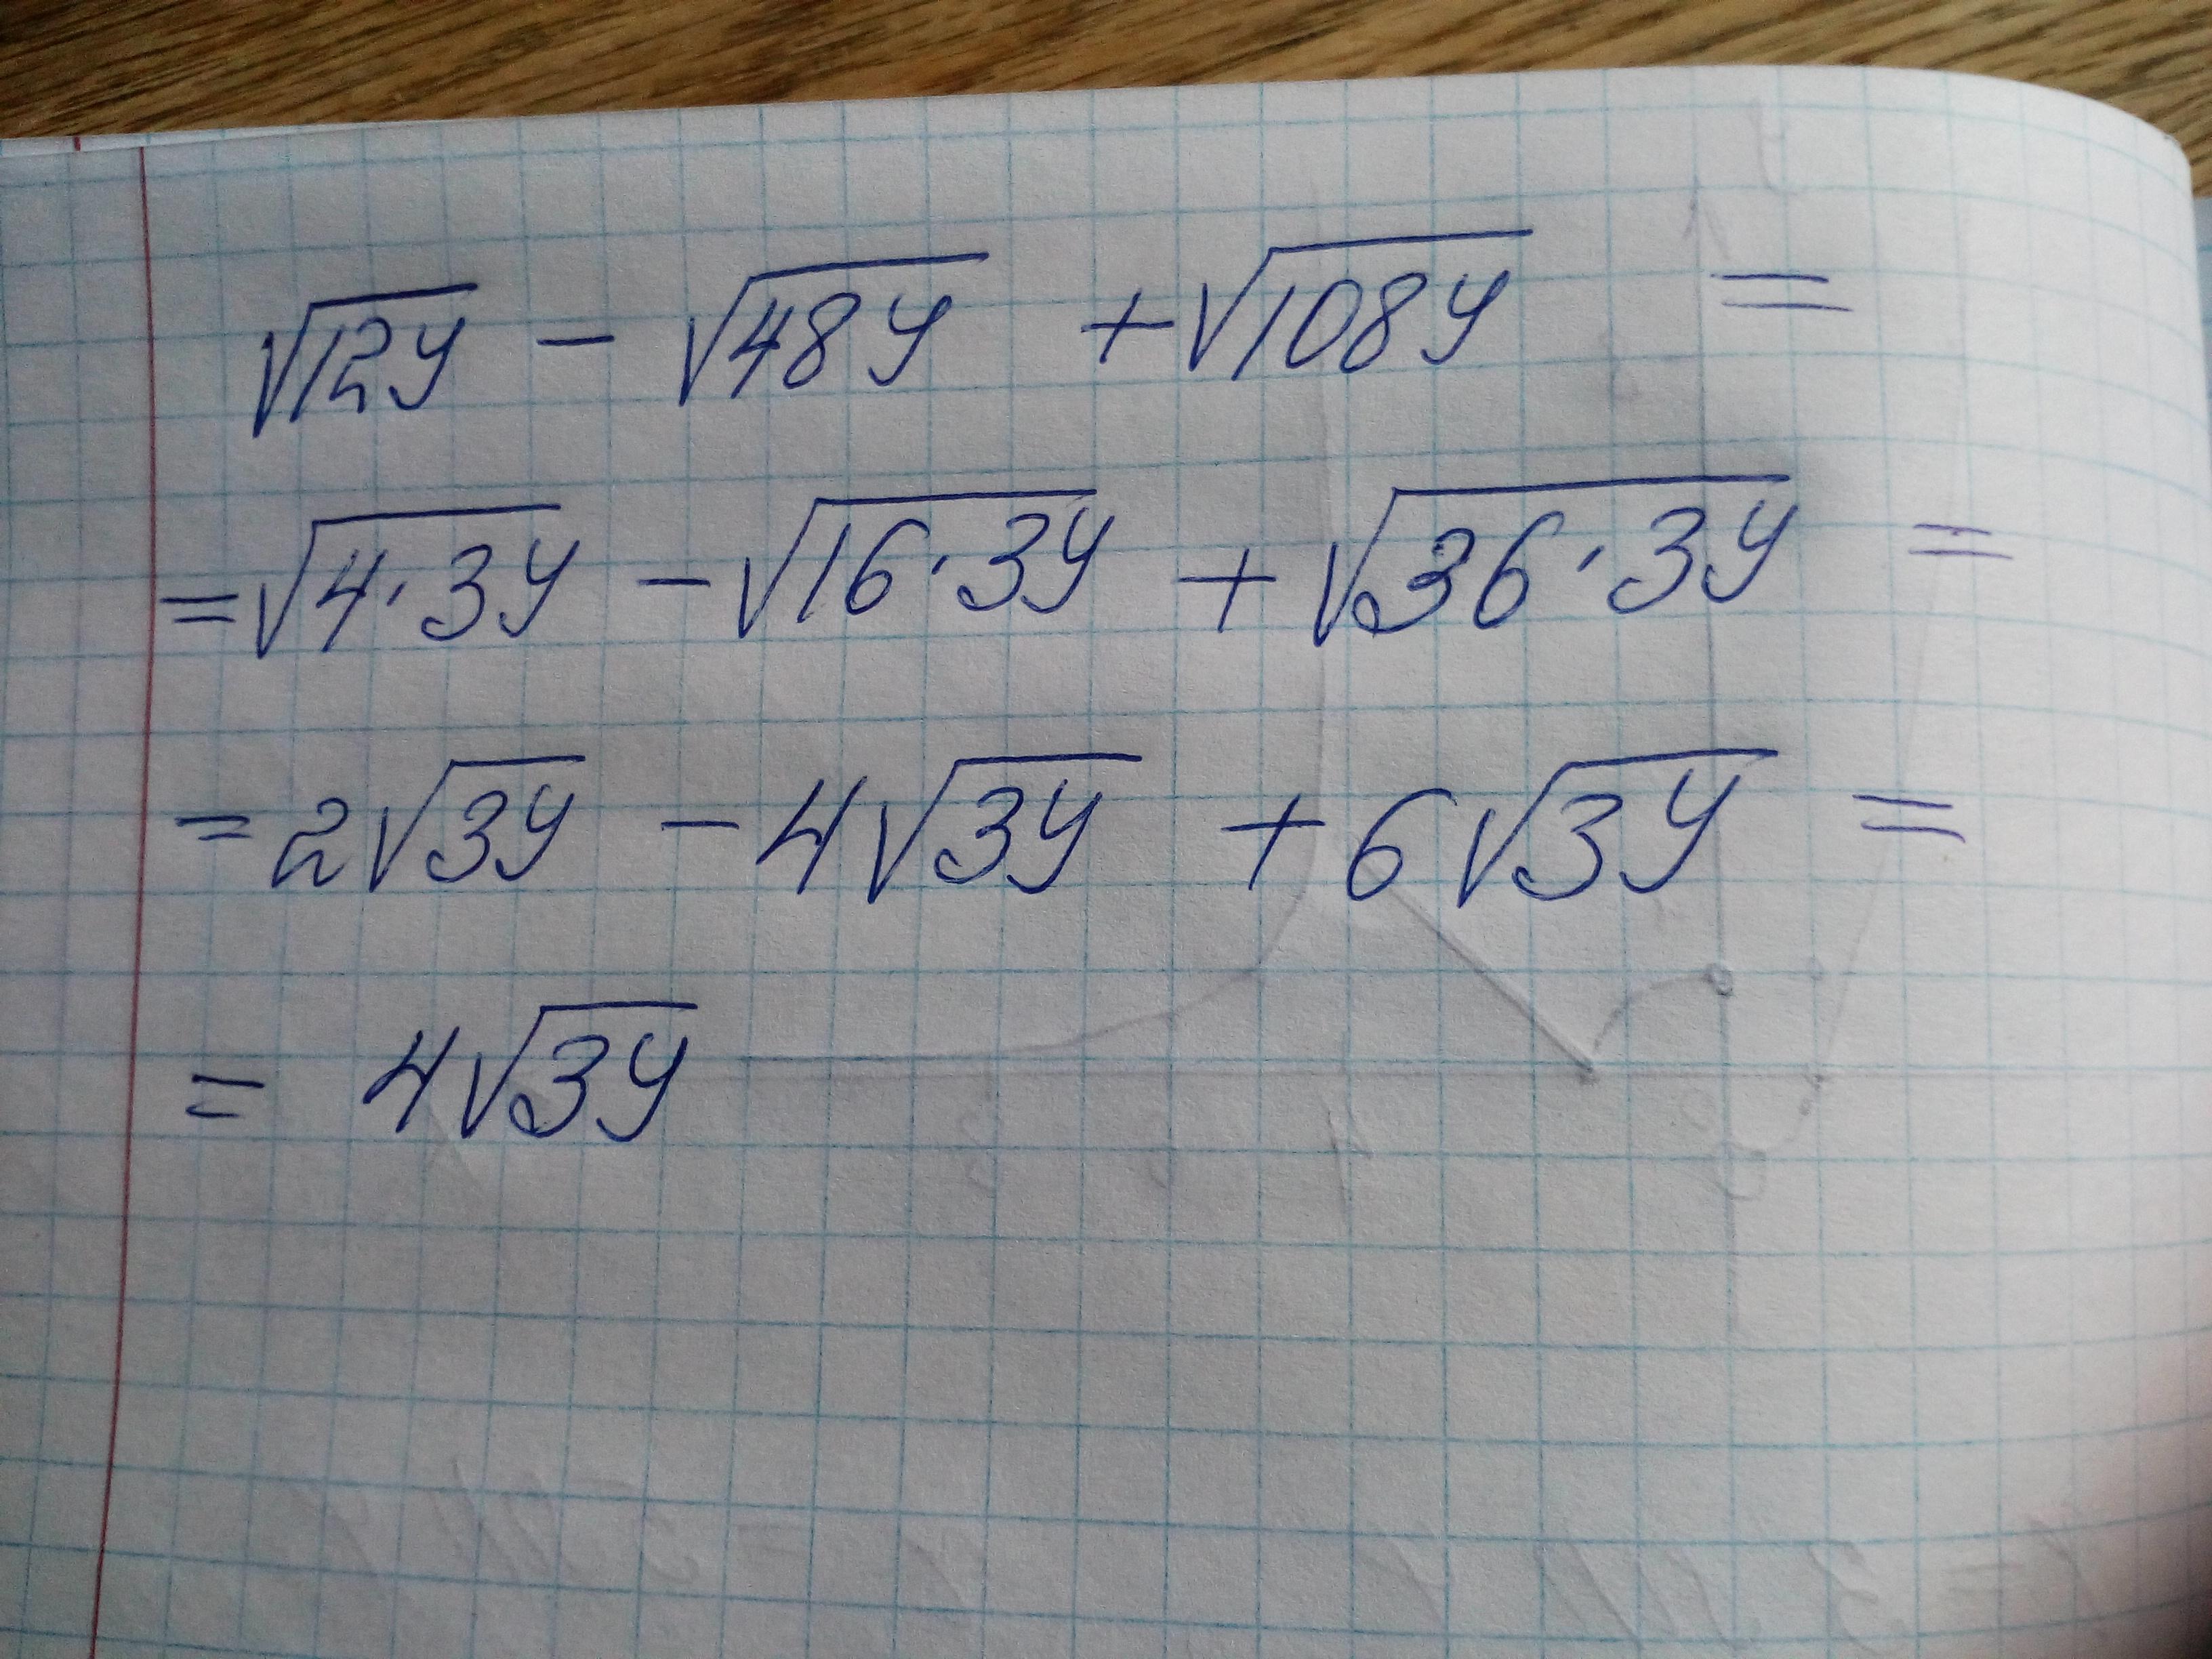 √12y − √48y + √108y =
= √4·3y − √16·3y + √36·3y =
= 2√3y − 4√3y + 6√3y =
= 4√3y